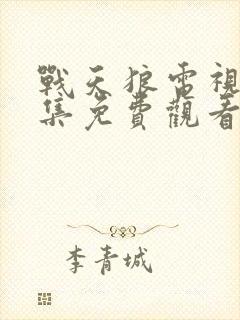 戰天狼電視
集免費觀看
李青城